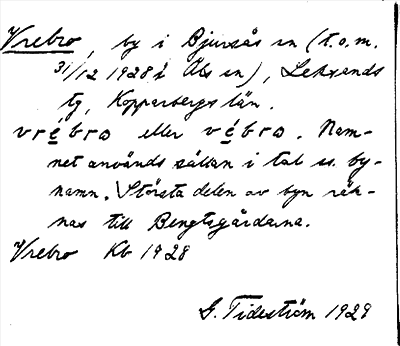 Vrebro, by i Bjursås sn (t.o.m.
31/12 1928 i Åls sn), Leksands
tg, Kopparbergs län.
vrébro eller vébro. Nam-
net användes sällan i tal ss. by-
namn. Största delen av byn räk-
nas till Bengtsgårdarna.
Vrebro Kb 1928
G. Tideström 1929